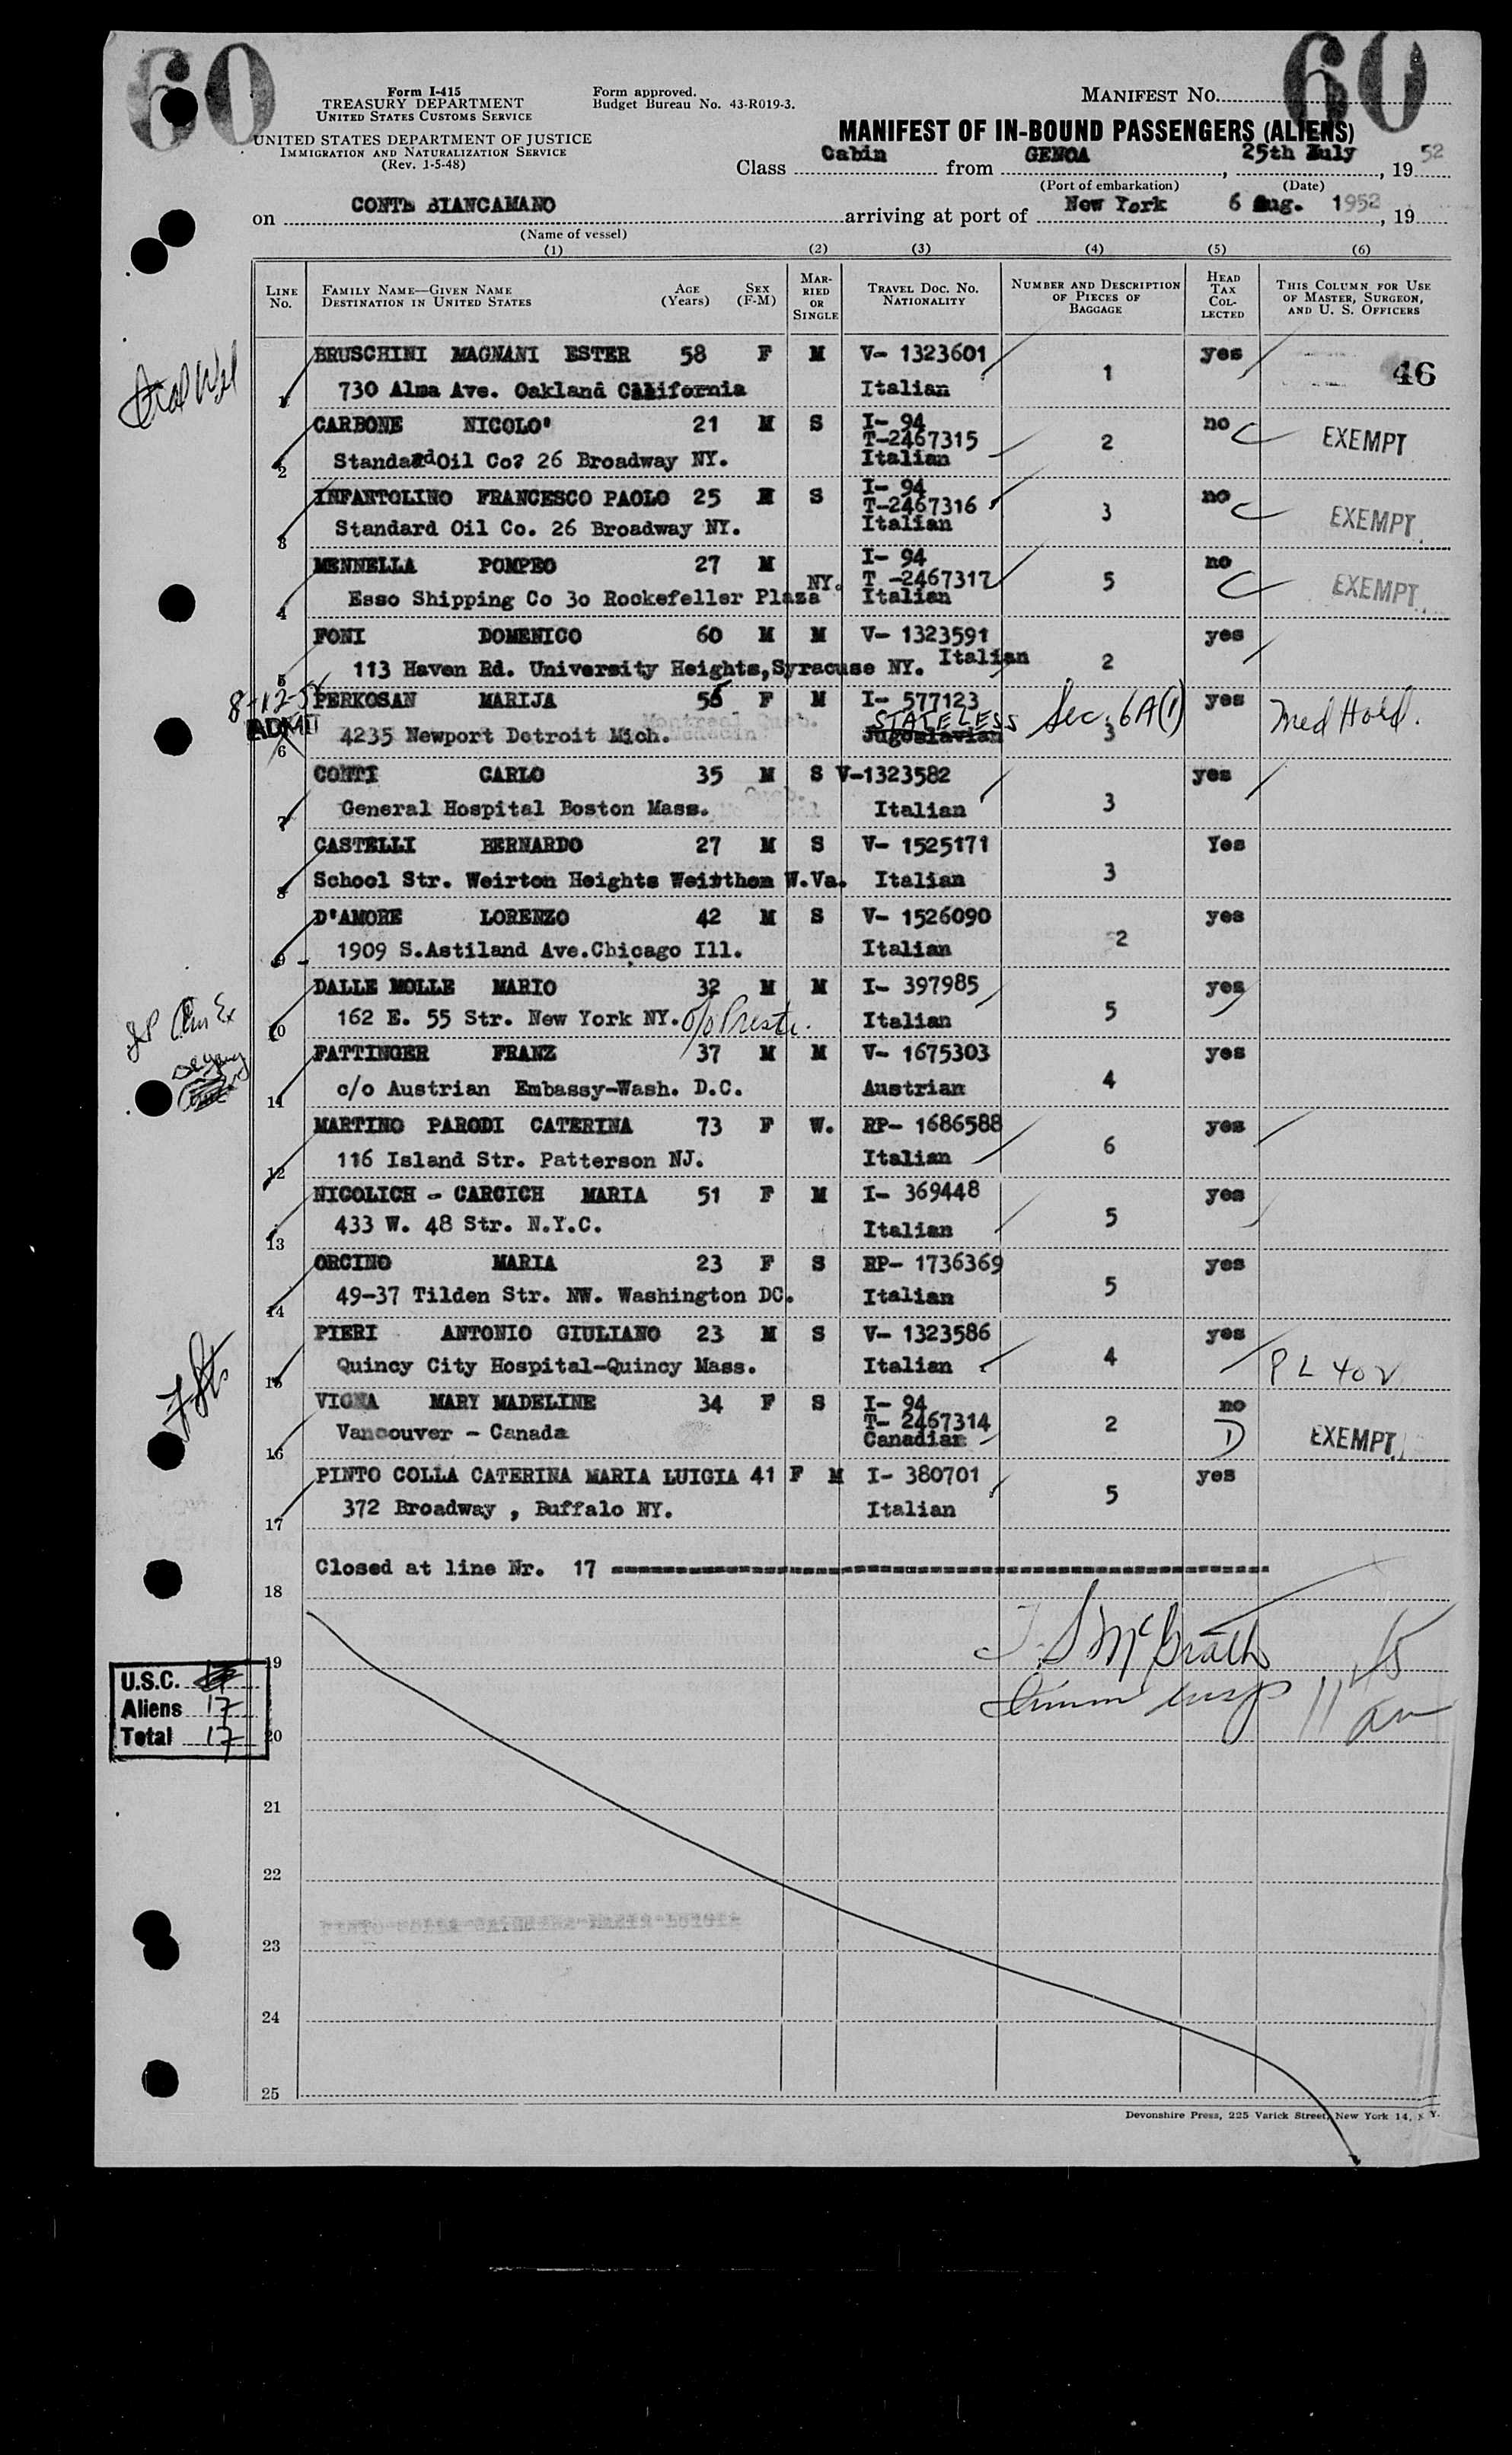 60
60
Form I-415
TREASURY DEPARTMENT
UNITED STATES CUSTOMS SERVICE
UNITED STATES DEPARTMENT OF JUSTICE
IMMIGRATION AND NATURALIZATION SERVICE
(Rev. 1-5-48)
Form approved.
Budget Bureau No. 43-R019-3.
MANIFEST NO.
MANIFEST OF IN-BOUND PASSENGERS (ALIENS)
Class Cabin from GENOA, 25th July, 1952
(Port of embarkation) (Date)
on CONTE BIANCAMANO arriving at port of New York 6 Aug. 1952, 19
(Name of vessel)
(1) (2) (3) (4) (5) (6)
LINE No. FAMILY NAME—GIVEN NAME DESTINATION IN UNITED STATES AGE (Years) SEX (F-M) MARRIED OR SINGLE TRAVEL DOC. NO. NATIONALITY NUMBER AND DESCRIPTION OF PIECES OF BAGGAGE HEAD TAX COLLECTED THIS COLUMN FOR USE OF MASTER, SURGEON, AND U. S. OFFICERS
BRUSCHINI MAGNANI ESTER 58 F M V- 1323601 1 yes 46
1 730 Alma Ave. Oakland California Italian
CARBONE NICOLO' 21 M S I- 94 T-2467315 2 no C EXEMPT
2 Standaadoil Co? 26 Broadway NY. Italian
INFANTOLINO FRANCESCO PAOLO 25 M S I- 94 T-2467316 3 no C EXEMPT
3 Standard Oil Co. 26 Broadway NY. Italian
MENNELLA POMPEO 27 M I- 94 T -2467317 5 no C EXEMPT
4 Esso Shipping Co 3o Rockefeller Plaza NY. Italian
FONI DOMENICO 60 M M V- 1323591 2 yes
5 113 Haven Rd. University Heights,Syracuse NY. Italian
8-12-5
ADMIT
PERKOSAN MARIJA 56 F M I- 577123 Sec. 6A(1) yes Med Hold.
6 4235 Newport Detroit Mich. STATELESS Jugoslavian 3
CONTI CARLO 35 M S V-1323582 3 yes
7 General Hospital Boston Mass. Italian
CASTELLI BERNARDO 27 M S V- 1525171 3 Yes
8 School Str. Weirton Heights Weirthon W.Va. Italian
D'AMORE LORENZO 42 M S V- 1526090 2 yes
9 1909 S.Astiland Ave.Chicago Ill. Italian
DALLE MOLLE MARIO 32 M M I- 397985 5 yes
10 162 E. 55 Str. New York NY. Italian
FATTINGER FRANZ 37 M M V- 1675303 4 yes
11 c/o Austrian Embassy-Wash. D.C. Austrian
MARTINO PARODI CATERINA 73 F W. RP- 1686588 6 yes
12 116 Island Str. Patterson NJ. Italian
NICOLICH - CARCICH MARIA 51 F M I- 369448 5 yes
13 433 W. 48 Str. N.Y.C. Italian
ORCINO MARIA 23 F S RP- 1736369 5 yes
14 49-37 Tilden Str. NW. Washington DC. Italian
PIERI ANTONIO GIULIANO 23 M S V- 1323586 4 yes PL 402
15 Quincy City Hospital-Quincy Mass. Italian
VIGNA MARY MADELINE 34 F S I- 94 T- 2467314 2 no D EXEMPT
16 Vancouver - Canada Canadian
PINTO COLLA CATERINA MARIA LUIGIA 41 F M I- 380701 5 yes
17 372 Broadway , Buffalo NY. Italian
Closed at line Nr. 17
18
J. S McGrath
19
Immi Insp 11 45 am
U.S.C. 17
Aliens 17
Total 17
20
21
22
PINTO COLLA CATERINA MARIA LUIGIA
23
24
25
Devonshire Press, 225 Varick Street, New York 14, N. Y.